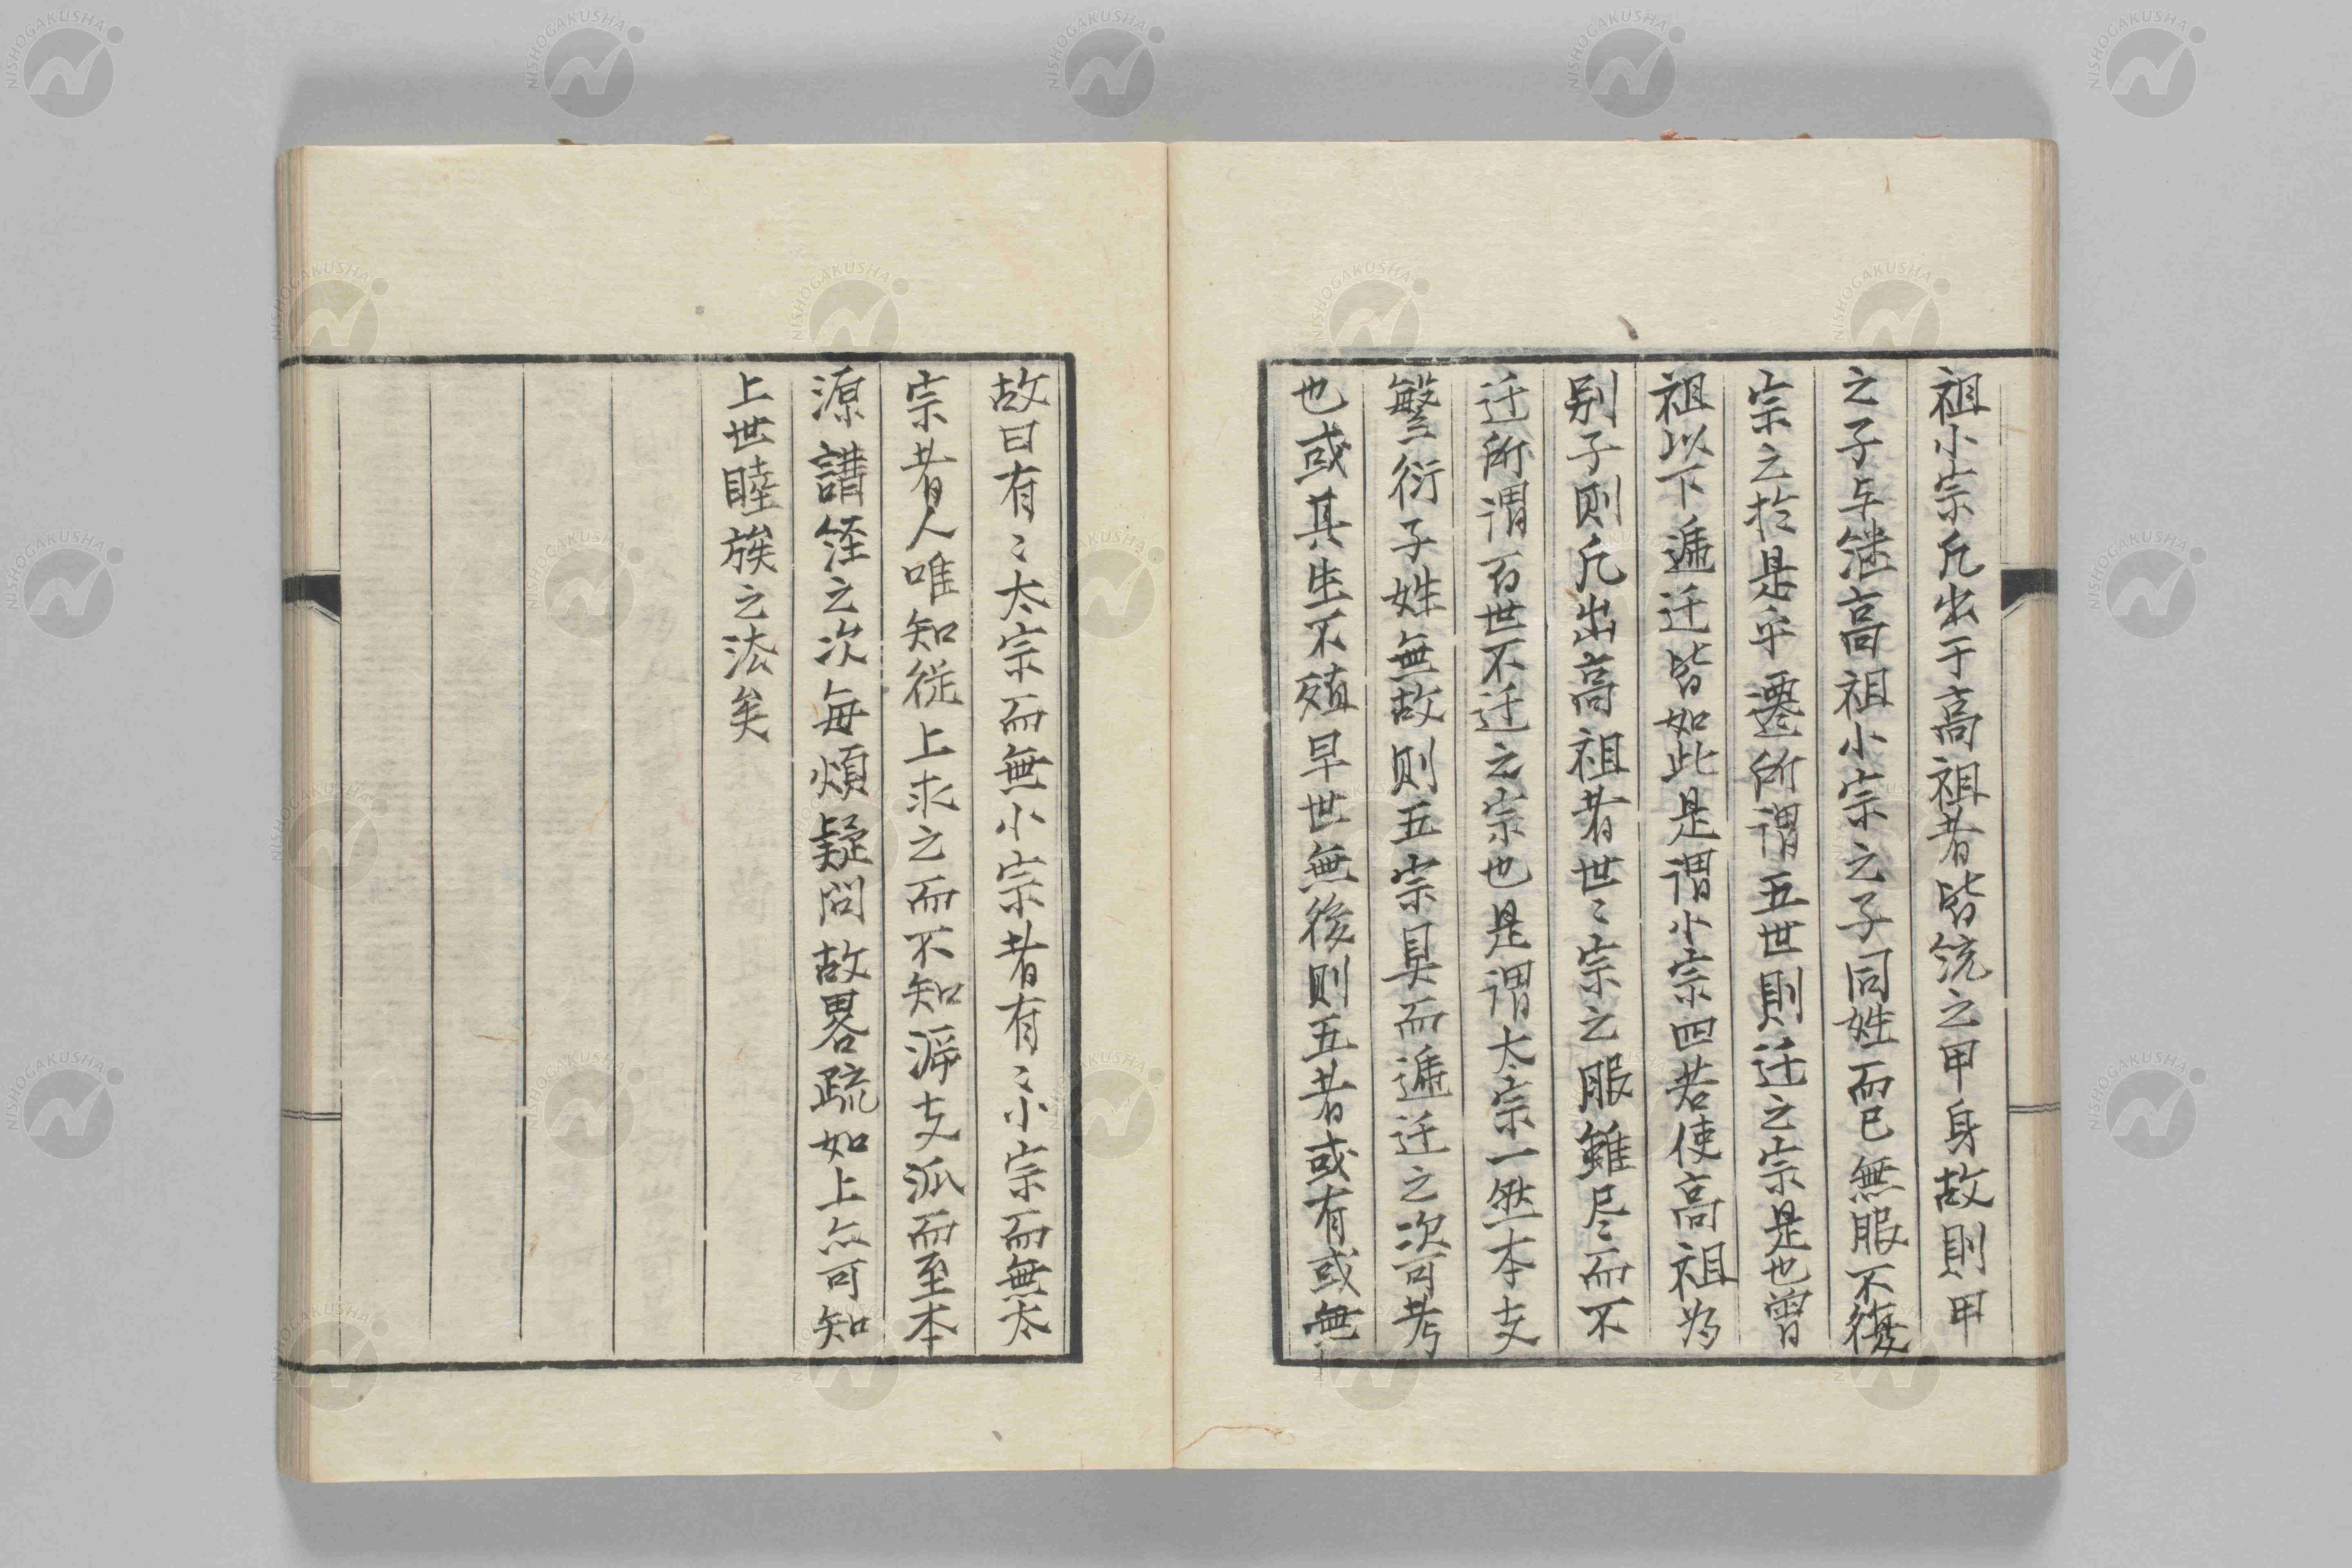 祖小宗凡出于高祖者皆統之甲身故則甲
之子与继高祖小宗之子同姓而已無服不復
宗之於是乎遷所謂五世則迁之宗是也曽
祖以下逓迁皆如此是謂小宗四若使高祖为
别子则凡出高祖者世〻宗之服雖尽而不
迁所謂百世不迁之宗也是謂太宗一然本支
繁衍子姓無故则五宗具而逓迁之次可考
也或其生不殖早世無後则五者或有或無
故曰有〻太宗而無小宗者有〻小宗而無太
宗者人唯知従上求之而不知泝支派而至本
源講経之次毎煩疑問故畧疏如上亦可知
上世睦族之法矣
NISHOGAKUSHA